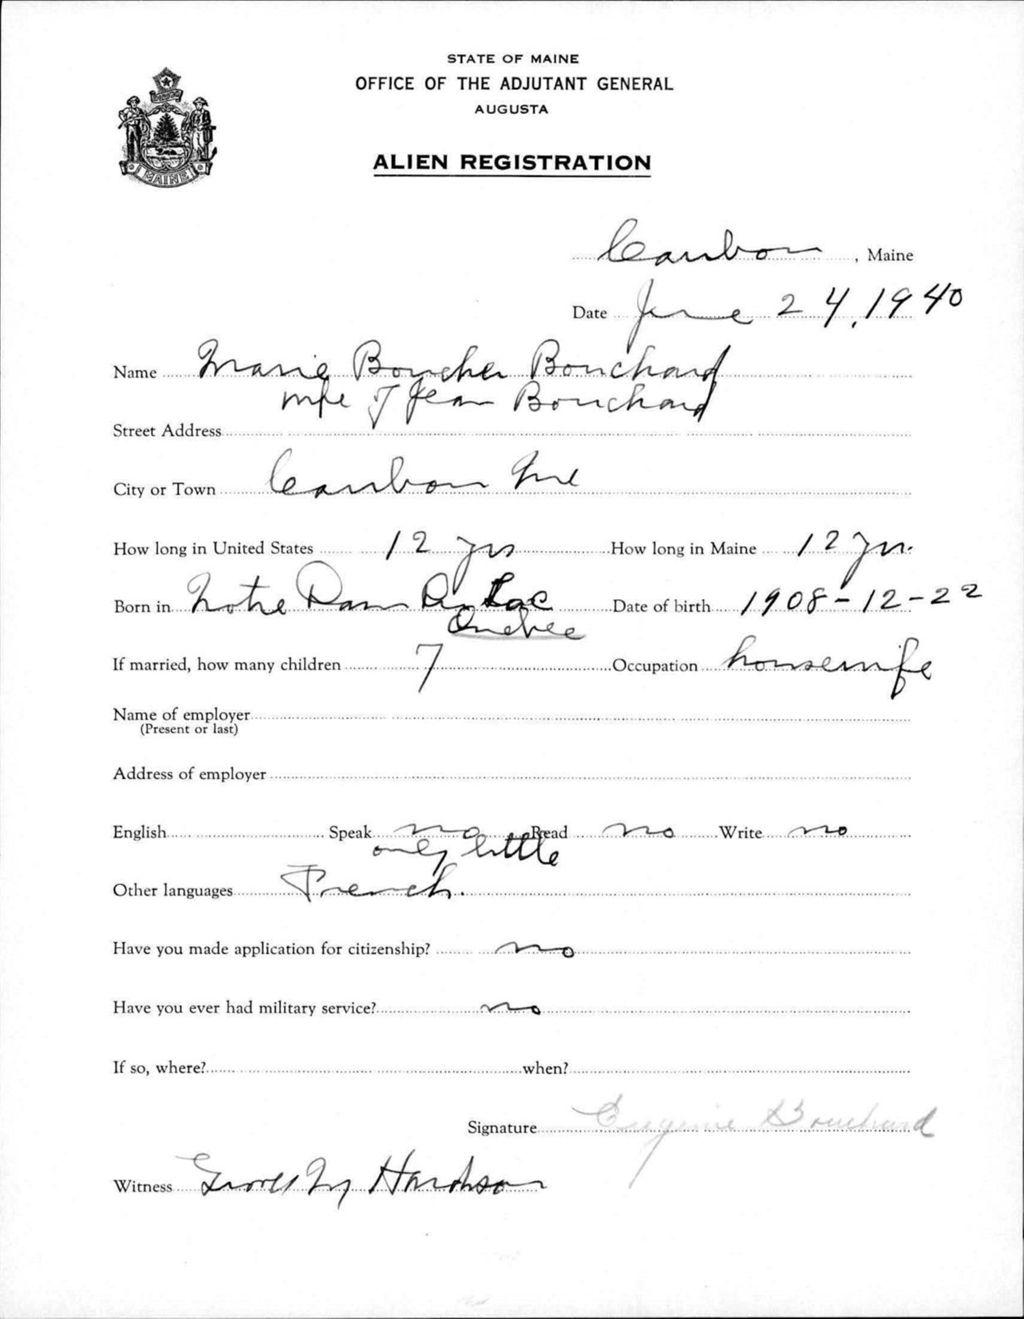 STATE OF MAINE
OFFICE OF THE ADJUTANT GENERAL
AUGUSTA
ALIEN REGISTRATION
MAINE
Caribou, Maine
Date June 24, 1940
Name Marie Boucher Bouchard
wife of Jean Bouchard
Street Address
City or Town Caribou Me
How long in United States 12 yrs How long in Maine 12 yrs.
Born in Notre Dam Du Lac Date of birth 1908-12-22
Quebec
If married, how many children 7 Occupation housewife
Name of employer
(Present or last)
Address of employer
English Speak no Read no Write no
only little
Other languages French.
Have you made application for citizenship? no
Have you ever had military service? no
If so, where? when?
Signature Eugenie Bouchard
Witness M Hardison